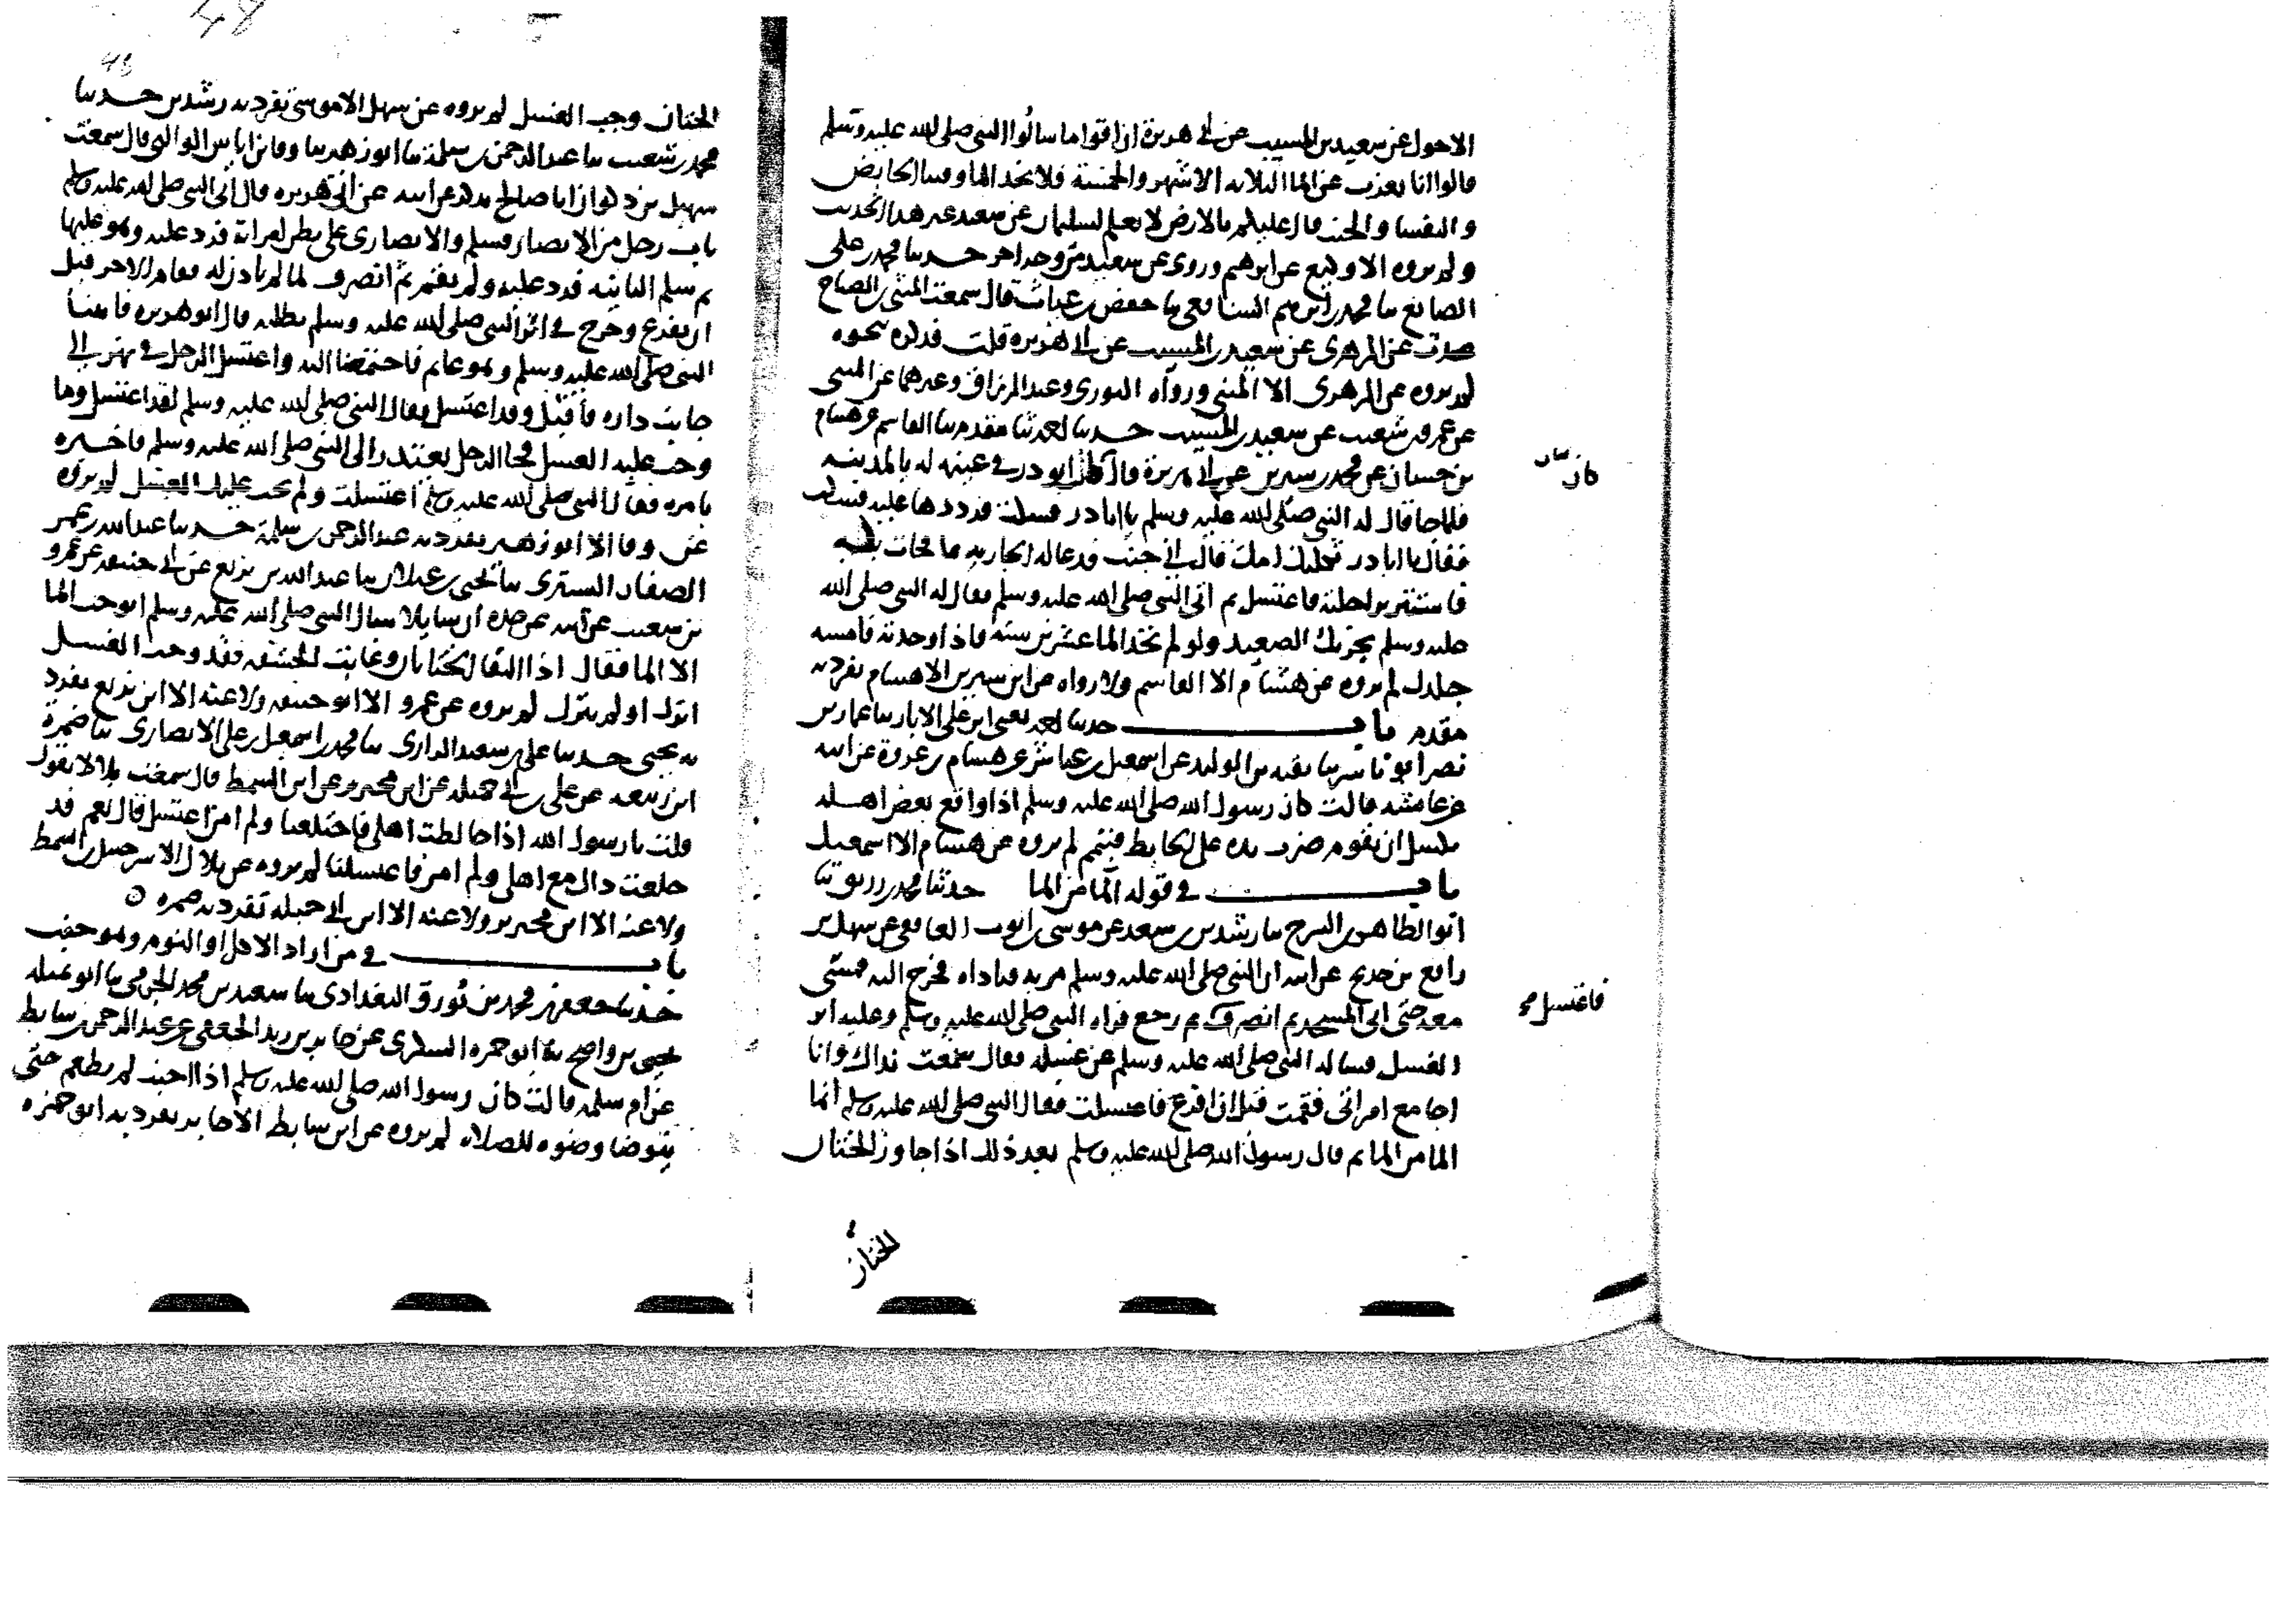 الاحول عن سعيد بن المسيب عن ابي هريرة ان اقواما سالوا النبي صلى الله عليه وسلم
قالوا انا نعزب عن الماء الثلاثة الاشهر والخمسة فلا نجد الماء وفينا الحايض
والنفسا والجنب قال عليكم بالارض لا نعلم لسليمان عن سعيد غير هذا الحديث
ولم يروه الا وكيع عن ابرهيم وروى عن سعيد من وجه اخر حدثنا محمد بن علي
الصائغ ثنا محمد بن ابرهيم الشافعي ثنا حفص بن غياث قال سمعت المثنى بن الصباح
عن الزهري عن سعيد بن المسيب عن ابي هريرة قلت فذكره نحوه
لم يروه عن الزهري الا المثنى ورواه الثوري وعبد الرزاق وغيرهما عن المثنى
عن عمرو بن شعيب عن سعيد بن المسيب حدثنا احمد ثنا مقدم ثنا القاسم عن هشام
بن حسان عن محمد بن سيرين عن ابي هريرة قال كان ابو ذر في غنيمة له بالمدينة
فلما جا قال له النبي صلى الله عليه وسلم يا ابا ذر فسكت فرددها عليه فسكت
فقال يا ابا ذر ثكلتك امك قال اني جنب فدعا له الجارية بما فجات به
فاستتر براحلته فاغتسل ثم اتى النبي صلى الله عليه وسلم فقال له النبي صلى الله
عليه وسلم يجزيك الصعيد ولو لم تجد الما عشرين سنة فاذا وجدته فامسه
جلدك لم يروه عن هشام الا القاسم ولا رواه عن ابن سيرين الا هشام تفرد به
مقدم باب حدثنا احمد يعني ابن علي الابار ثنا عمار بن
نصر ابو ياسر ثنا بقية بن الوليد عن اسمعيل بن عياش عن هشام بن عروة عن ابيه
عن عائشة قالت كان رسول الله صلى الله عليه وسلم اذا واقع بعض اهله
فكسل ان يقوم ضرب يده على الحايط فتيمم لم يروه عن هشام الا اسمعيل
باب في قوله الما من الما حدثنا محمد بن رزيق ثنا
ابو الطاهر بن السرح ثنا رشدين بن سعد عن موسى بن ايوب الغافقي عن سهل بن
رافع بن خديج عن ابيه ان النبي صلى الله عليه وسلم مر به فناداه فخرج اليه فمشى
معه حتى اتى المسجد ثم انصرف ثم رجع فراه النبي صلى الله عليه وسلم وعليه اثر
الغسل فساله النبي صلى الله عليه وسلم عن غسله فقال سمعت نداك وانا
اجامع امراتي فقمت قبل ان افرغ فاغتسلت فقال النبي صلى الله عليه وسلم انما
الما من الما ثم قال رسول الله صلى الله عليه وسلم بعد ذلك اذا جاوز الختان
الختان
كان
فاغتسل
الختان وجب الغسل لم يروه عن سهل الا موسى تفرد به رشدين حدثنا
محمد بن شعيب ثنا عبد الرحمن بن سلمة ثنا ابو زهير ثنا وقا بن اياس الوالبي قال سمعت
سهيل بن ذكوان ابا صالح يذكر عن ابيه عن ابي هريره قال اتى النبي صلى الله عليه وسلم
باب رجل من الانصار فسلم والانصاري على بطن امراته فرد عليه وهو عليها
ثم سلم الثانية فرد عليه ولم يقم ثم انصرف لما لم ياذن له فقام الاخر قبل
ان يفرغ وخرج في اثر النبي صلى الله عليه وسلم يطلبه قال ابو هريره
النبي صلى الله عليه وسلم وهو قائم واغتسل الرجل في نهر الى
جانب داره فاقبل وقد اغتسل فقال النبي صلى الله عليه وسلم لقد اغتسل وما
وجب عليه الغسل فجا الرجل يعتذر الى النبي صلى الله عليه وسلم فاخبره
بامره فقال النبي صلى الله عليه وسلم اغتسلت ولم يجب عليك الغسل لم يروه
عن وقا الا ابو زهير تفرد به عبد الرحمن بن سلمة حدثنا عبد الله بن عمر
الصفار التستري ثنا يحيى بن غيلان ثنا عبد الله بن بزيع عن ابي حنيفة عن عمرو
بن شعيب عن ابيه عن جده ان سايلا سال النبي صلى الله عليه وسلم ايوجب الما
الا الما فقال اذا التقا الختانان وغابت الحشفه فقد وجب الغسل
انزل او لم ينزل لم يروه عن عمرو الا ابو حنيفه ولا عنه الا ابن بزيع تفرد
به يحيى حدثنا علي بن سعيد الرازي ثنا محمد بن اسمعيل بن علي الانصاري ثنا ضمرة
ابن ربيعه عن علي بن ابي حمله عن ابن محيريز عن ابن السمط قال سمعت بلالا يقول
قلت يا رسول الله اذا خالطت اهلي فاختلعنا ولم امن اغتسل قال نعم قد
خلعت ذاك مع اهلي ولم امن فاغتسلنا لم يروه عن بلال الا شرحبيل بن السمط
ولا عنه الا ابن محيريز ولا عنه الا ابن ابي حمله تفرد به ضمره
باب في من اراد الاكل او النوم وهو جنب
حدثنا جعفر بن محمد بن بورق البغدادي ثنا سعيد بن محمد الجرمي ثنا ابو تميله
يحيى بن واضح ثنا ابو حمزه السكري عن جابر بن يزيد الجعفي عن عبد الرحمن بن سابط
عن ام سلمه قالت كان رسول الله صلى الله عليه وسلم اذا اجنب لم يطعم حتى
يتوضا وضوه للصلاه لم يروه عن ابن سابط الا جابر تفرد به ابو حمزه